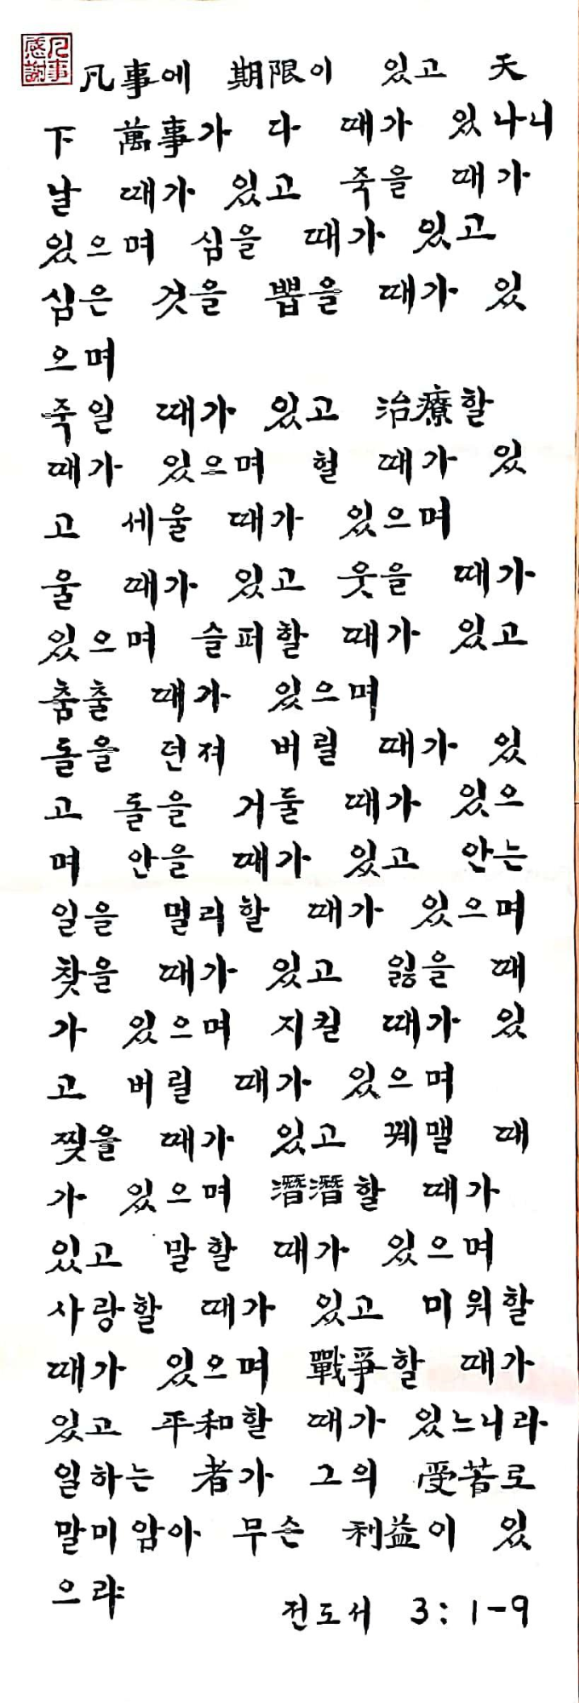 凡事
感謝
凡事에 期限이 있고 天
下 萬事가 다 때가 있나니
날 때가 있고 죽을 때가
있으며 심을 때가 있고
심은 것을 뽑을 때가 있
으며
죽일 때가 있고 治療할
때가 있으며 헐 때가 있
고 세울 때가 있으며
울 때가 있고 웃을 때가
있으며 슬퍼할 때가 있고
춤출 때가 있으며
돌을 던져 버릴 때가 있
고 돌을 거둘 때가 있으
며 안을 때가 있고 안는
일을 멀리할 때가 있으며
찾을 때가 있고 잃을 때
가 있으며 지킬 때가 있
고 버릴 때가 있으며
찢을 때가 있고 꿰맬 때
가 있으며 潛潛할 때가
있고 말할 때가 있으며
사랑할 때가 있고 미워할
때가 있으며 戰爭할 때가
있고 平和할 때가 있느니라
일하는 者가 그의 受苦로
말미암아 무슨 利益이 있
으랴
전도서 3:1-9